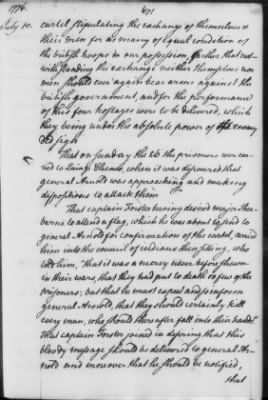 1776. 671
July 10. cartel, stipulating the exchange of themselves &
their men for as many of equal condition of
the british troops in our possession, further that not-
withstanding the exchange neither themselves nor
men should ever again bear arms against the
british government, and for the performance
of this four hostages were to be delivered, which
they being under the absolute power of the enemy
did sign
That on Sunday the 26 the prisoners were carri-
ed to Quinze Chenes, where it was discovered that
general Arnold was approaching and making
dispositions to attack them
That captain Forster having desired major Sher-
burne to attend a flag, which he was about to send to
general Arnold for confirmation of the cartel, carried
him into the council of indians then sitting, who
told him, "that it was a mercy never before shewn
in their wars, that they had put to death so few of the
prisoners; but that he must expect and so inform
general Arnold, that they should certainly kill
every man, who should thereafter fall into their hands."
That captain Forster joined in desiring that this
bloody message should be delivered to general Ar-
nold and moreover that he should be notified,
that